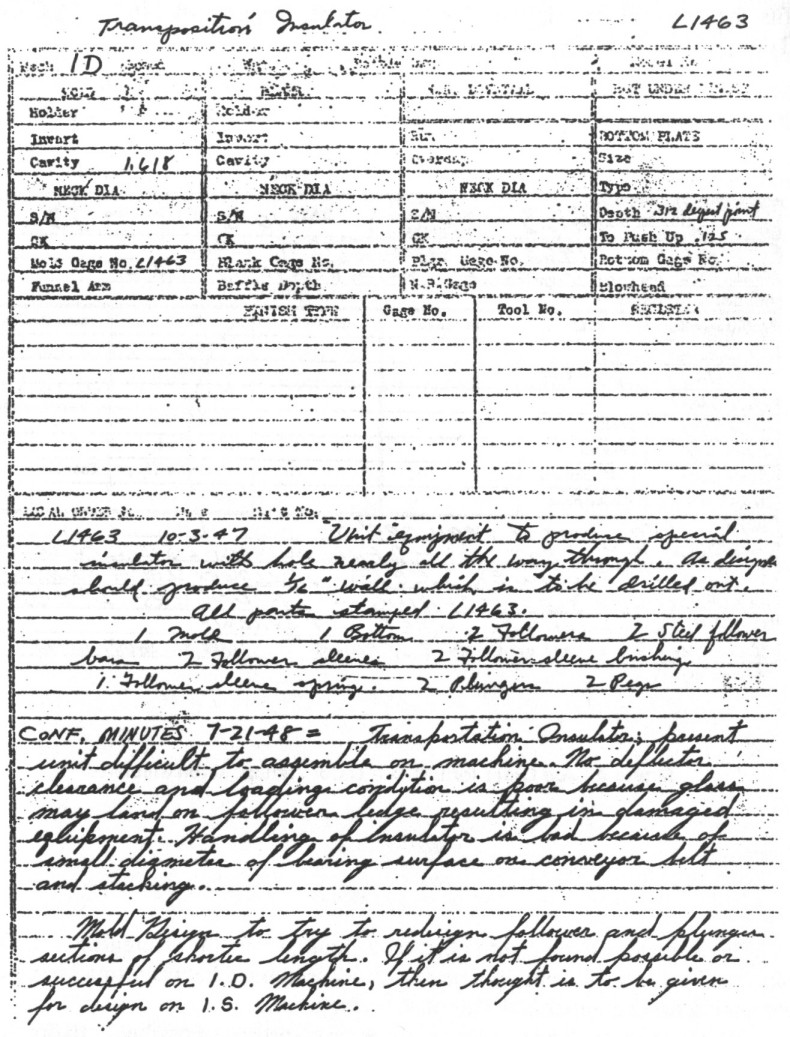 Transposition Insulator L1463
Mach 1D
MOLD BLANK N.R. INVERTAL
Holder Holder
Invert Invert BOTTOM PLATE
Cavity 1.618 Cavity Size
NECK DIA NECK DIA NECK DIA Type
S/N S/N S/N Depth 312 deepest point
CK CK CK To Push Up .125
Mold Gage No. L1463 Blank Gage No. Plgr. Gage No. Bottom Gage No.
Funnel Arm Baffle Depth N.R. Gage Blowhead
FINISH TYPE Gage No. Tool No.
LOCAL ORDER
L1463 10-3-47 "Unit" equipment to produce special
insulator with hole nearly all the way through. As designed
should produce 1/16" wall which is to be drilled out.
All parts stamped L1463.
1 Mold 1 Bottom 2 Followers 2 Steel follower
bars 2 Follower sleeves 2 Follower sleeve bushing
1 Follower sleeve spring. 2 Plungers 2 Pegs
CONF. MINUTES 7-21-48 = Transportation Insulator; present
unit difficult to assemble on machine. No deflector
clearance and loading condition is poor because glass
may land on follower ledge resulting in damaged
equipment. Handling of Insulator is bad because of
small diameter of bearing surface on conveyor belt
and stacking.
Mold Design to try to redesign follower and plunger
sections of shorter length. If it is not found possible or
successful on I.D. Machine, then thought is to be given
for design on I.S. Machine.